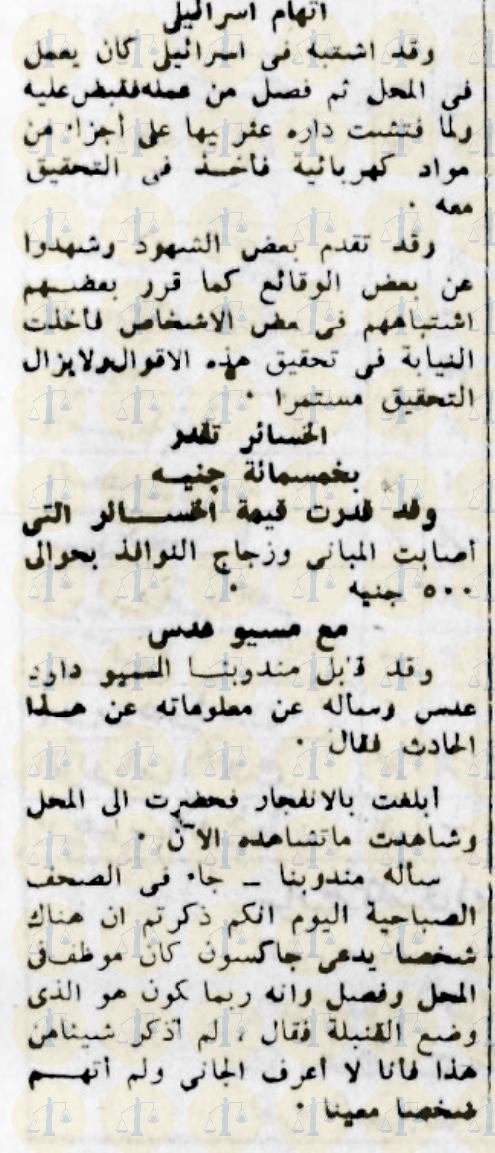 اتهام اسرائيلى
وقد اشتبه فى اسرائيلى كان يعمل
فى المحل ثم فصل من عمله فقبض عليه
ولما فتشت داره عثر فيها على أجزاء من
مواد كهربائية فأخذ فى التحقيق
معه ٠
وقد تقدم بعض الشهود وشهدوا
عن بعض الوقائع كما قرر بعضهم
اشتباههم فى بعض الاشخاص فأخذت
النيابة فى تحقيق هذه الاقوال ولايزال
التحقيق مستمرا ٠
الخسائر تقدر
بخمسمائة جنيه
وقد قدرت قيمة الخسائر التى
أصابت المبانى وزجاج النوافذ بحوالى
٥٠٠ جنيه ٠
مع مسيو عدس
وقد قابل مندوبنا المسيو داود
عدس وسأله عن معلوماته عن هذا
الحادث فقال ٠
أبلغت بالانفجار فحضرت الى المحل
وشاهدت ماتشاهده الآن ٠
سأله مندوبنا ــ جاء فى الصحف
الصباحية اليوم انكم ذكرتم ان هناك
شخصا يدعى جاكسون كان موظف فى
المحل وفصل وانه ربما يكون هو الذى
وضع القنبلة فقال ، لم أذكر شيئا من
هذا فأنا لا أعرف الجانى ولم أتهم
شخصا معينا ٠